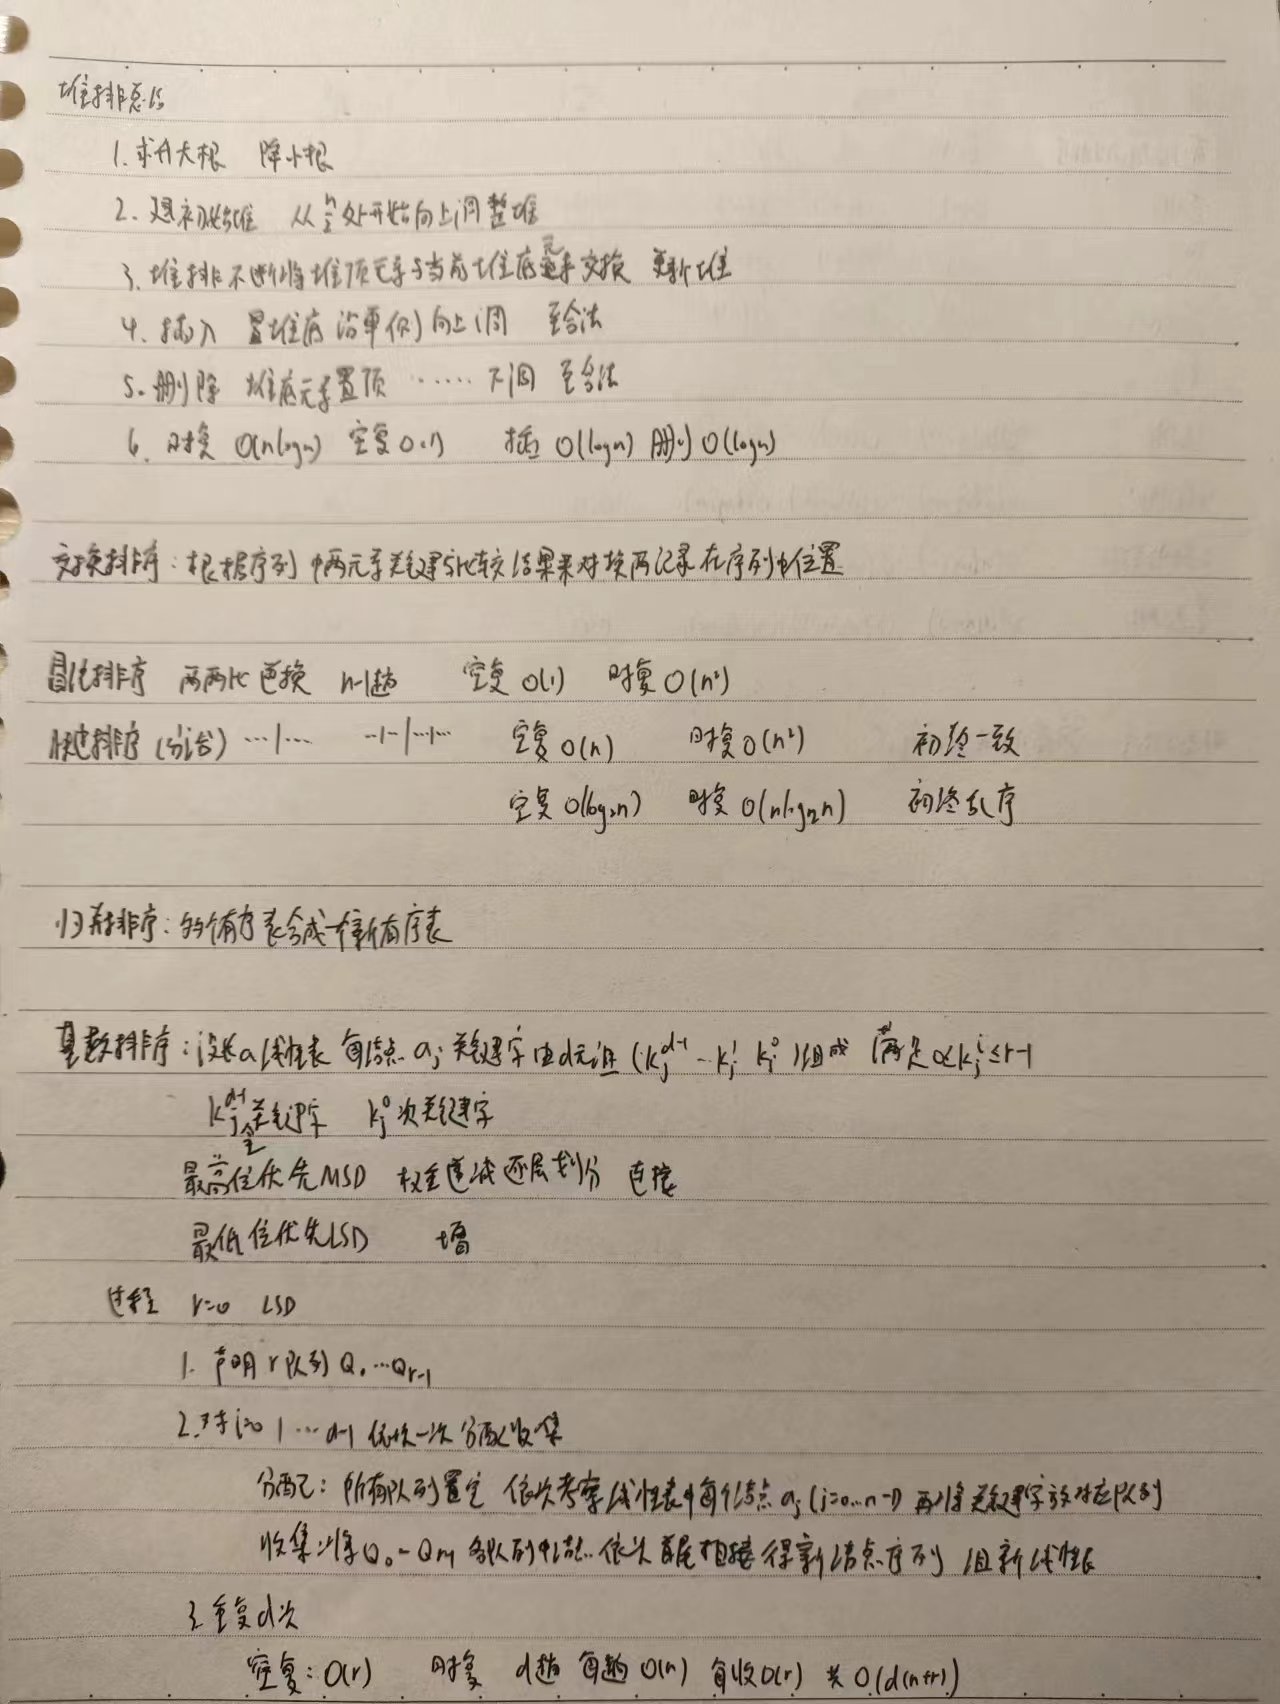 堆排总结
1. 求升大根 降小根
2. 建初始堆 从n/2处开始向上调整堆
3. 堆排不断将堆顶元素与当前堆底元素交换 更新堆
4. 插入 置堆底 沿单侧向上调 至合法
5. 删除 堆底元素置顶 …… 下调 至合法
6. 时复 O(nlogn) 空复O(1) 插 O(logn) 删 O(logn)
交换排序：根据序列中两元素关键字比较结果来对换两记录在序列中位置
冒泡排序 两两比 逆换 n-1趟 空复 O(1) 时复 O(n²)
快速排序（分治）…|… …|…|…|… 空复 O(n) 时复 O(n²) 初终一致
空复 O(log₂n) 时复 O(nlog₂n) 初终乱序
归并排序：的有序表合成一个新有序表
基数排序：设长a线性表 每结点 aj 关键字由d元组 (kj^d-1 … kj^1 kj^0)组成 满足 0≤kj^i≤r-1
kj^d-1 主关键字 kj^0 次关键字
最高位优先MSD 权重递减逐层划分 连接
最低位优先LSD 增
过程 r=0 LSD
1. 声明 r 队列 Q₀…Qr-1
2. 对 i=0 1 … d-1 依次一次 分配收集
分配：所有队列置空 依次考察线性表中每个结点 aj (j=0…n-1) 再将关键字放对应队列
收集：将Q₀-Qr-1 各队列中结点 依次首尾相接 得新结点序列 组新线性表
3. 重复d次
空复：O(r) 时复 d趟 每趟 O(n) 每收O(r) 共 O(d(n+r))